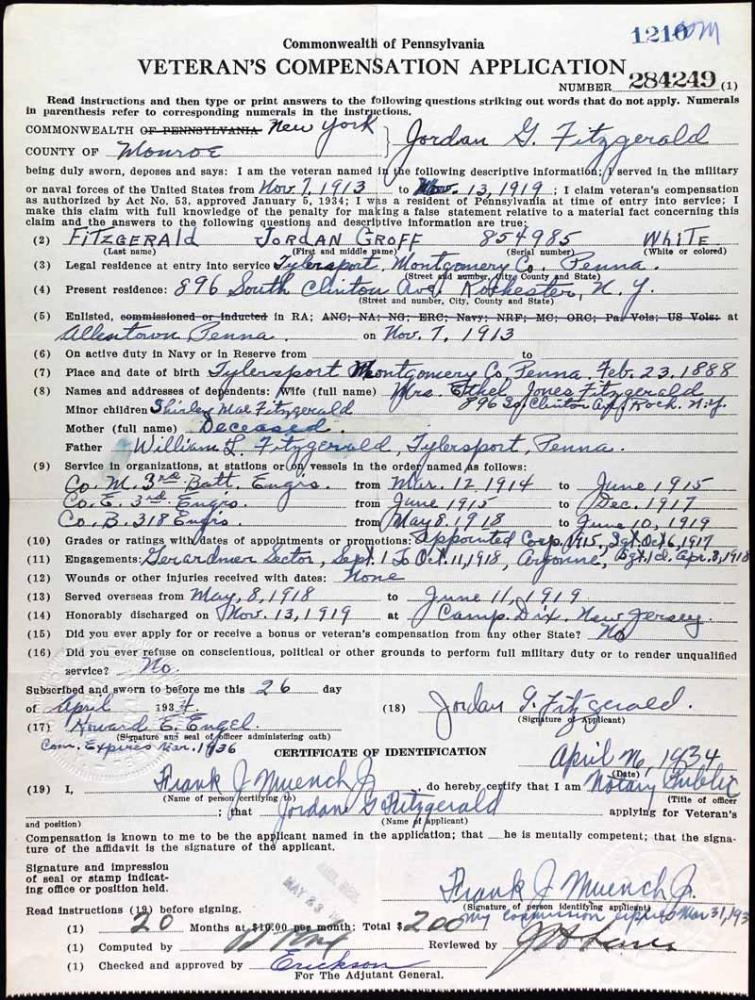 1210
Commonwealth of Pennsylvania
VETERAN'S COMPENSATION APPLICATION
NUMBER 284249 (1)
Read instructions and then type or print answers to the following questions striking out words that do not apply. Numerals
in parenthesis refer to corresponding numerals in the instructions.
COMMONWEALTH OF PENNSYLVANIA New York
COUNTY OF Monroe } Jordan G. Fitzgerald
being duly sworn, deposes and says: I am the veteran named in the following descriptive information; I served in the military
or naval forces of the United States from Nov. 7, 1913 to Nov. 13, 1919; I claim veteran's compensation
as authorized by Act No. 53, approved January 5, 1934; I was a resident of Pennsylvania at time of entry into service; I
make this claim with full knowledge of the penalty for making a false statement relative to a material fact concerning this
claim and the answers to the following questions and descriptive information are true:
(2) FITZGERAld JORdAN GROFF 854985 WhiTE
(Last name) (First and middle name) (Serial number) (White or colored)
(3) Legal residence at entry into service Tylersport, Montgomery Co. Penna.
(Street and number, City, County and State)
(4) Present residence: 896 South Clinton Ave, Rochester, N.Y.
(Street and number, City, County and State)
(5) Enlisted, commissioned or inducted in RA; ANC; NA; NG; ERC; Navy; NRF; MC; ORC; Pa. Vols; US Vols: at
Allentown Penna. on Nov. 7, 1913
(6) On active duty in Navy or in Reserve from to
(7) Place and date of birth Tylersport Montgomery Co, Penna. Feb. 23. 1888
(8) Names and addresses of dependents: Wife (full name) Mrs. Ethel Jones Fitzgerald
Minor children Shirley Mae Fitzgerald 896 So. Clinton Ave, Roch. N.Y.
Mother (full name) Deceased.
Father William L. Fitzgerald, Tylersport, Penna.
(9) Service in organizations, at stations or (on) vessels in the order named as follows:
Co. M. 3rd Batt. Engrs. from Mar. 12 1914 to June 1915
Co. E. 3rd. Engrs. from June 1915 to Dec. 1917
Co. B. 318 Engrs. from May 8. 1918 to June 10, 1919
(10) Grades or ratings with dates of appointments or promotions: Appointed Corp. 1915, Sgt. Oct 6, 1917
(11) Engagements: Gerardmer Sector, Sept. 1 To Oct. 11, 1918, Argonne, Sgt. 1cl. Apr. 3, 1918
(12) Wounds or other injuries received with dates: None
(13) Served overseas from May, 8, 1918 to June 11, 1919
(14) Honorably discharged on Nov. 13, 1919 at Camp. Dix. New Jersey.
(15) Did you ever apply for or receive a bonus or veteran's compensation from any other State? No
(16) Did you ever refuse on conscientious, political or other grounds to perform full military duty or to render unqualified
service? No.
Subscribed and sworn to before me this 26 day
of April 1934.
(18) Jordan G. Fitzgerald.
(Signature of Applicant)
(17) Howard E. Engel.
(Signature and seal of officer administering oath)
Com. Expires Mar. 1936
CERTIFICATE OF IDENTIFICATION
April 26, 1934
(Date)
(19) I, Frank J Muench Jr, do hereby certify that I am Notary Public
(Name of person certifying to) (Title of officer
; that Jordan G Fitzgerald applying for Veteran's
and position) (Name of applicant)
Compensation is known to me to be the applicant named in the application; that he is mentally competent; that the signa-
ture of the affidavit is the signature of the applicant.
Signature and impression
of seal or stamp indicat-
ing office or position held.
MAY 23
Frank J Muench Jr.
(Signature of person identifying applicant)
My commission expires Mar 31, 193
Read instructions (19) before signing.
(1) 20 Months at $10.00 per month: Total $ 200
(1) Computed by Reviewed by
(1) Checked and approved by Erickson
For The Adjutant General.